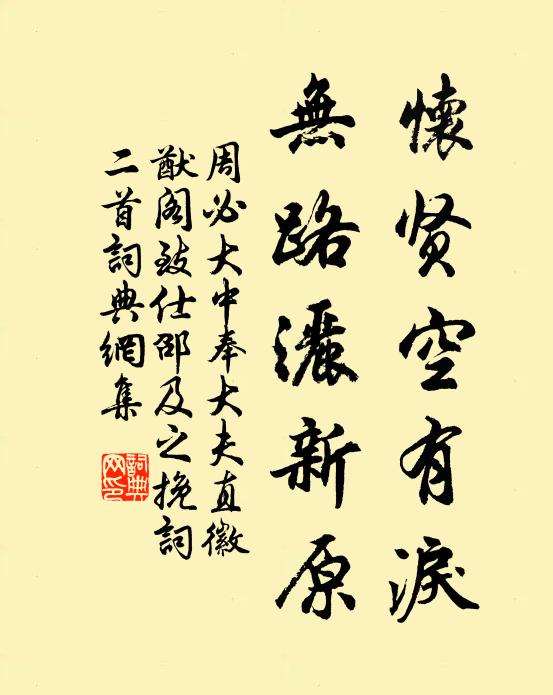 懷贤空有淚
無路灑新原
周必大中奉大夫直徽
猷阁致仕邵及之挽詞
二首詞典網集
詞典网印